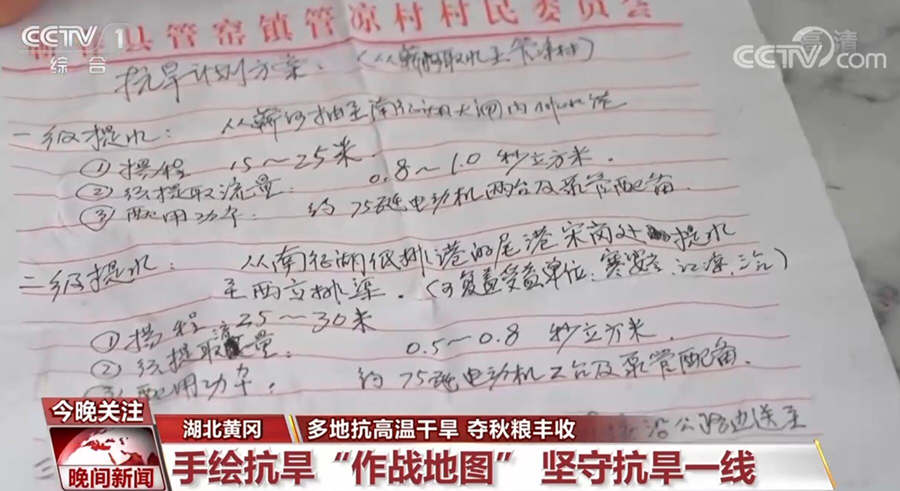 CCTV 1
综合
高清
CCTV.com
县管窑镇管凉村村民委员会
抗旱计划方案
一级提水：
① 扬程 15～25米
② 经提取流量： 0.8～1.0 秒立方米.
③ 配用功率： 约75砘电动机两台及泵管配备.
二级提水： 从南征湖低排港的尾港宋岗处 提水
至西立排渠. (可复盖受益单位:
① 扬程 25～30米
② 经提取流量： 0.5～0.8 秒立方米.
配用功率： 约75砘电动机2台及泵管配备.
沿公路边送至
三
今晚关注
湖北黄冈
多地抗高温干旱 夺秋粮丰收
晚间新闻
手绘抗旱“作战地图” 坚守抗旱一线